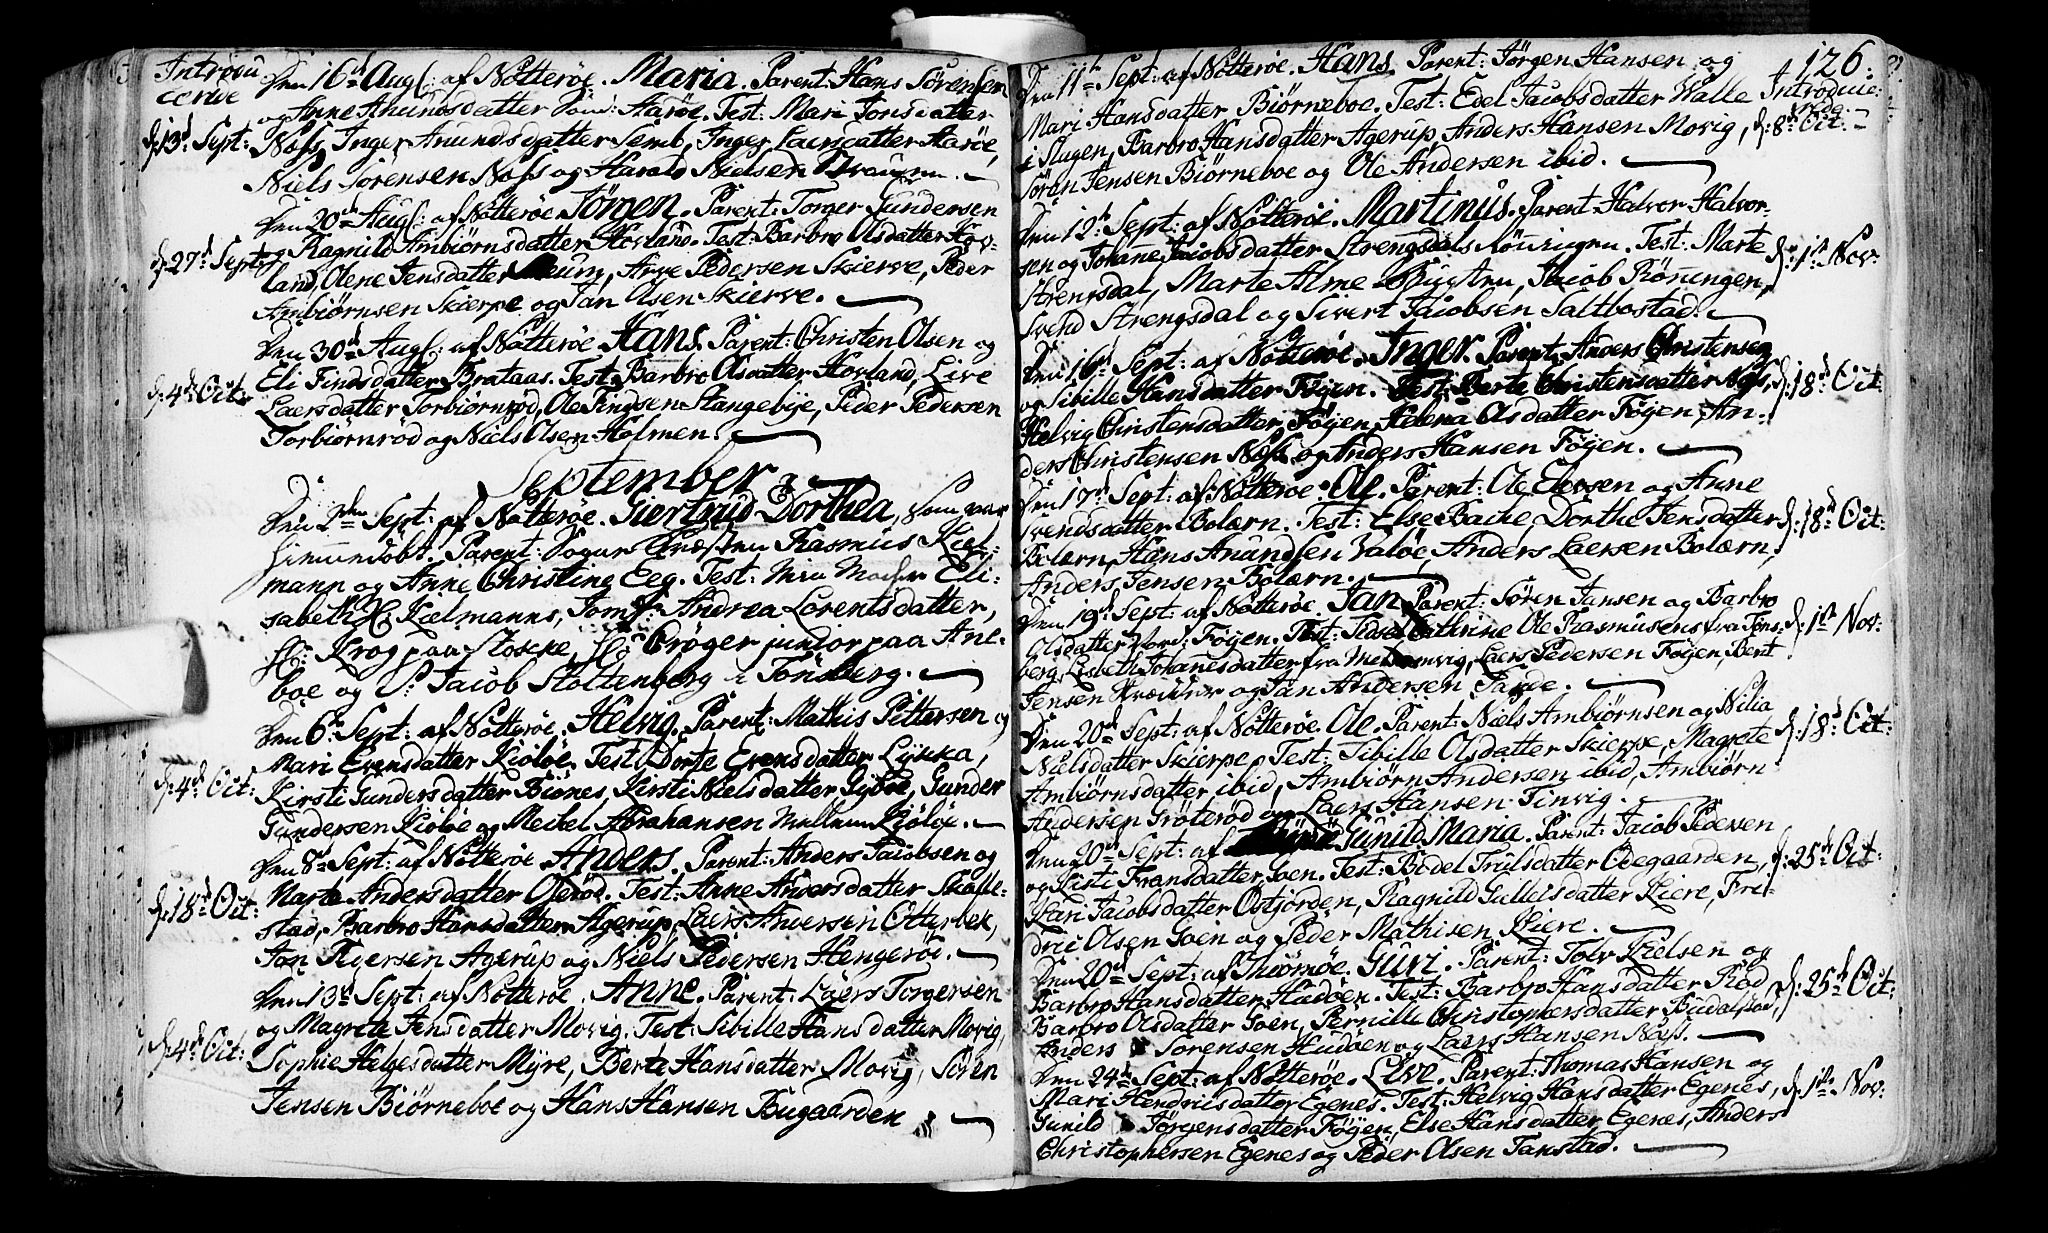 Introdu
cerede
Den 16d Aug: af Nötteröe. Maria. Parent: Hans Sörensen
og Anne Amundsdatter Aaröe. Test: Mari Jonsdatter
d: 13d Sept: Næss, Inger Amundsdatter Semb, Inger Laersdatter Aaröe,
Niels Sörensen Næss og Harald Nielsen
Den 20d Aug: af Nötteröe Jörgen. Parent: Torger Gundersen
d: 27d Sept: og Ragnild Ambiörnsdatter Hovland. Test: Barbro Olsdatter Hov-
land, Olene Jensdatter, Arve Pedersen Skierve, Peder
Ambiörnsen Skierpe og Jan Olsen Skierve.
Den 30d Aug: af Nötteröe Hans. Parent: Christen Olsen og
d: 4d Oct: Eli Findsdatter Brataas. Test: Barbro Olsdatter Hovland, Live
Laersdatter Torbiörnröd, Ole Findsen Stangebye, Peder Pedersen
Torbiörnröd og Niels Olsen Holmen.
September
Den 2den Sept: af Nötteröe. Giertrud Dorthea, som var
hiemmedöbt. Parent: Rasmus Kiel-
mann og Anne Christine Eeg. Test: Eli-
sabeth Kielmanns, Jomf: Andrea Lorentsdatter,
Hr: Krog paa Stokke, Hr: Cröger junior paa Ane-
boe og Sr: Jacob Stoltenberg i Tönsberg.
Den 6d Sept: af Nötteröe. Helvig. Parent: Mathis Pittersen og
Mari Evensdatter Kiölöe. Test: Dorte Evensdatter Lykka,
d: 4d Oct: Kirsti Gundersdatter Biönes, Kirsti Nielsdatter Gyböe, Gunder
Gundersen Kiölöe og Meikel Abrahansen Mellem Kiölöe.
Den 8d Sept: af Nötteröe Anders. Parent: Anders Jacobsen og
d: 18d Oct: Marte Andersdatter Oleröd. Test: Anne Andersdatter Skalle-
stad, Barbro Hansdatter Agerup, Laers Andersen Otterbek,
Jan Pedersen Agerup og Niels Pedersen Hengeröe.
Den 13d Sept: af Nötteröe. Anne. Parent: Laers Torgersen
og Magrete Jensdatter Movig. Test: Sibille Hansdatter Movig,
d: 4d Oct: Sophie Helgesdatter Myre, Berte Hansdatter Movig, Sören
Jensen Biörneboe og Hans Hansen Bugaarden
126.
Den 11te Sept: af Nötteröe. Hans. Parent: Jörgen Hansen og
Mari Hansdatter Biörneboe. Test: Edel Jacobsdatter Walle Introduce-
rede.
i Slugen, Barbro Hansdatter Agerup, Anders Hansen Movig, d: 8d Oct:
Sören Jensen Biörneboe og Ole Andersen ibid.
Den 12te Sept: af Nötteröe. Martinus. Parent: Halvor Halvor-
sen og Johanne Jacobsdatter Strengsdals. Test: Marte d: 1ste Nov:
Strengsdal, Marte Alme, Jacob Röningen,
Svend Strengsdal og Sivert Jacobsen Saltbostad.
Den 16d Sept: af Nötteröe. Inger. Parent: Anders Christensen
og Sibille Hansdatter Föyen. Test: Berte Christensdatter Næss, d: 18d Oct:
Helvig Christensdatter Föyen, Helena Olsdatter Föyen, An-
ders Christensen Næss og Anders Hansen Föyen.
Den 17d Sept: af Nötteröe. Ole. Parent: Ole Elevsen og Anne
Svendsdatter Bolærn. Test: Else Bache, Dorthe Jensdatter d: 18d Oct:
Bolærn, Hans Amundsen Valöe, Anders Laersen Bolærn,
Anders Jensen Bolærn.
Den 19d Sept: af Nötteröe. Jan. Parent: Sören Jansen og Barbro
Olsdatter Nord: Föyen. Test: Cathrine Ole Rasmusens fra Töns- d: 1ste Nov:
berg, Lisbeth Johanesdatter fra, Laers Pedersen Föyen, Bent
Jensen og Jan Andersen
Den 20d Sept: af Nötteröe. Ole. Parent: Niels Ambiörnsen og Nilia
Nielsdatter Skierpe. Test: Sibille Olsdatter Skierpe, Magrete d: 18d Oct:
Ambiörnsdatter ibid, Ambiörn Andersen ibid, Ambiörn
Andersen Gröteröd og Laers Hansen Tinvig.
Den 20d Sept: af Gunild Maria. Parent: Jacob Pedersen
og Kisti Fransdatter Goen. Test: Bodel Trulsdatter Ödegaarden, d: 25d Oct:
Kari Jacobsdatter Ostjorden, Ragnild Gulleksdatter Kiere, Fre-
dric Olsen Goen og Peder Mathisen Kiere.
Den 20d Sept: af Thiömöe. Guri. Parent: Tolv Kielsen og
Barbro Hansdatter Hudöen. Test: Barbro Hansdatter Röd, d: 25d Oct:
Barbro Olsdatter Goen, Pernille Christophersdatter Budalstad,
Anders Sörensen Hudöen og Laers Hansen Næss.
Den 24d Sept: af Nötteröe. Live. Parent: Thomas Hansen og
Mari Hendricsdatter Egenes. Test: Helvig Hansdatter Egenes, d: 1ste Nov:
Gunild Jörgensdatter Föyen, Else Hansdatter Egenes, Anders
Christophersen Egenes og Peder Olsen Tanstad.